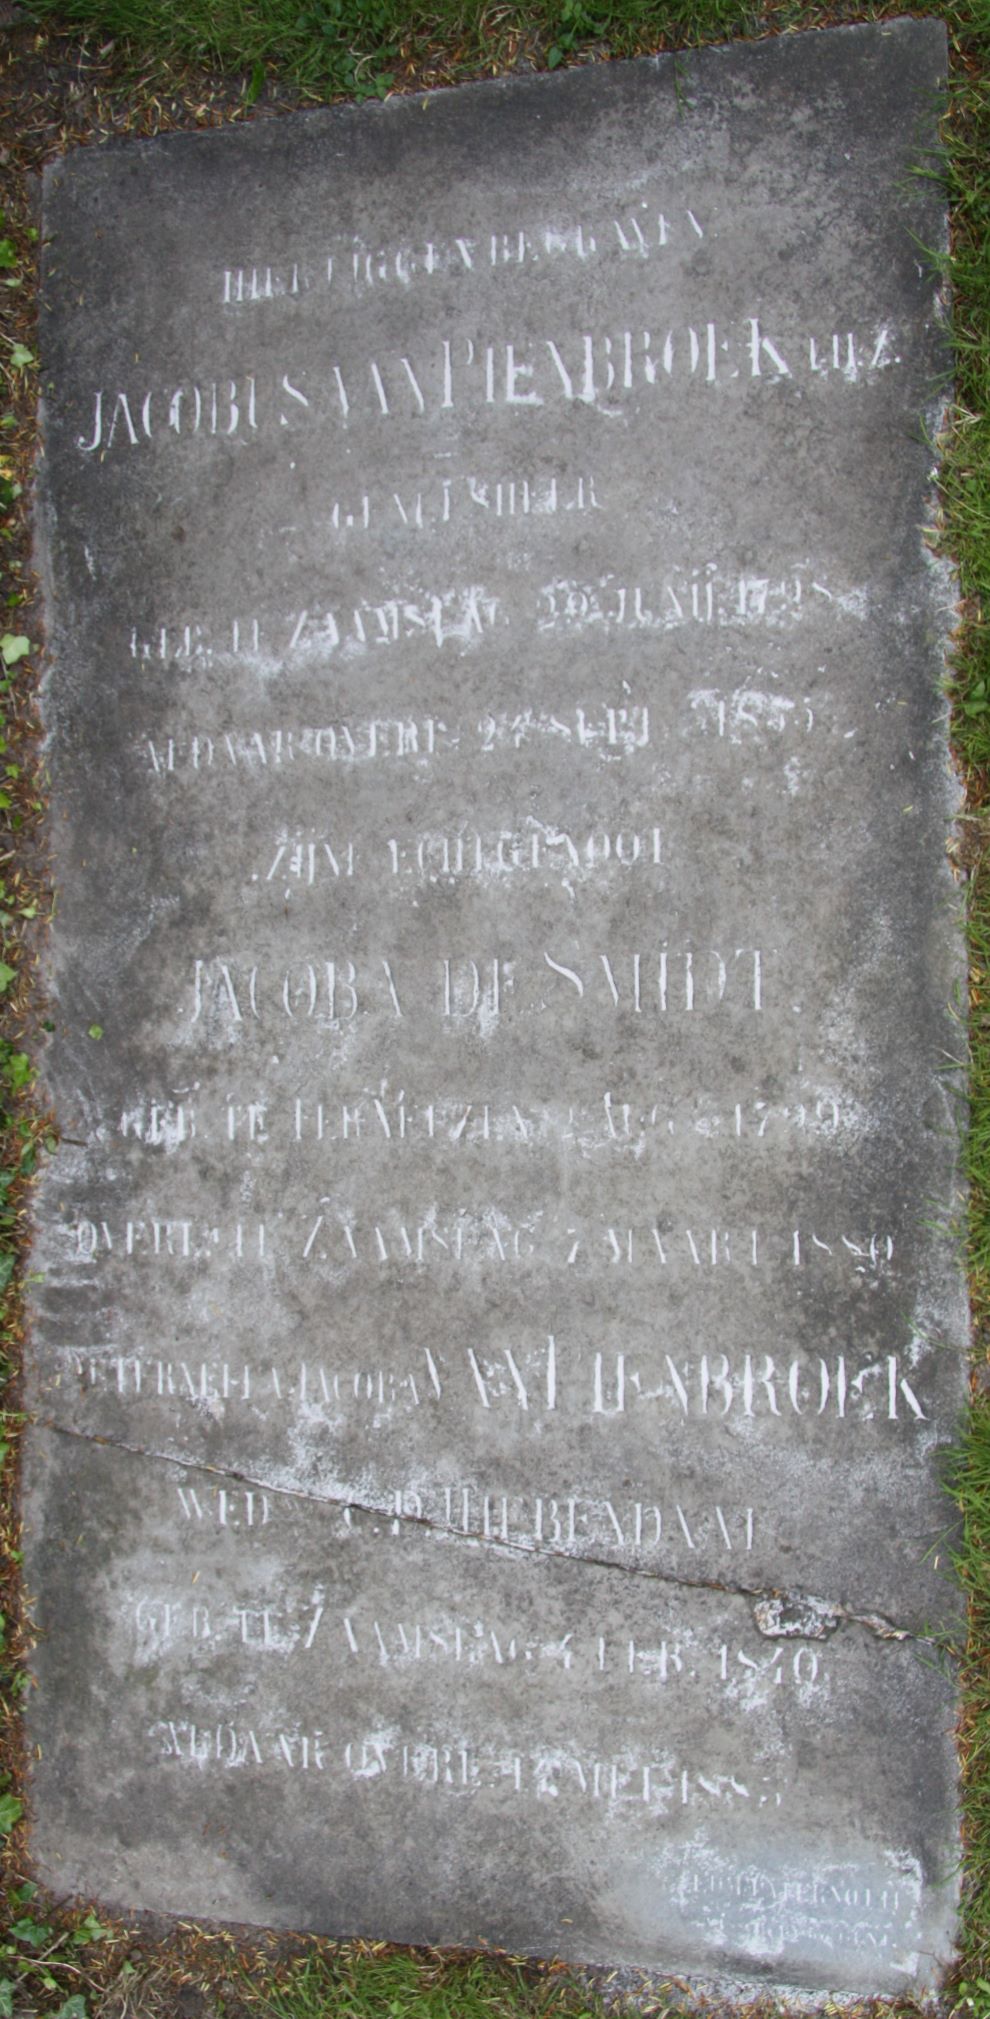 HIER LIGGEN BEGRAVEN
JACOBUS VAN PIENBROEK
GENEESHEER
GEB. TE ZAAMSLAG 20 JUNIJ 1798
ALDAAR OVERL. 24 SEPT. 1875
ZIJNE ECHTGENOOT
JACOBA DE SMIDT.
GEB. TE TERNEUZEN AUG. 1799
OVERL. TE ZAAMSLAG 7 MAART 1880
PETERNELLA JACOBA VAN PIENBROEK
WED. C. D. HIEBENDAAL
GEB. TE ZAAMSLAG 4 FEB. 1840.
ALDAAR OVERL. 12 MEI